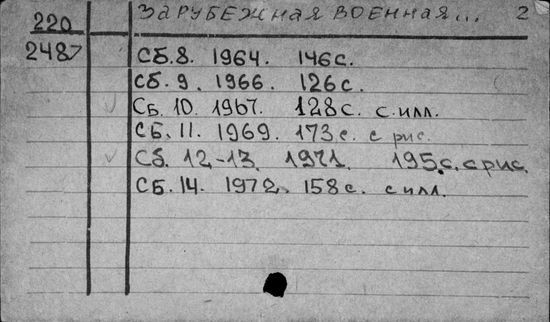 ЗАРУБЕЖНАЯ ВОЕННАЯ... 2
220
2487
Сб. 8. 1964. 146 с.
Сб. 9. 1966. 126 с.
Сб. 10. 1967. 128 с. с илл.
Сб. 11. 1969. 173 с. с рис.
Сб. 12-13. 1971. 195 с. с рис.
Сб. 14. 1972. 158 с. с илл.